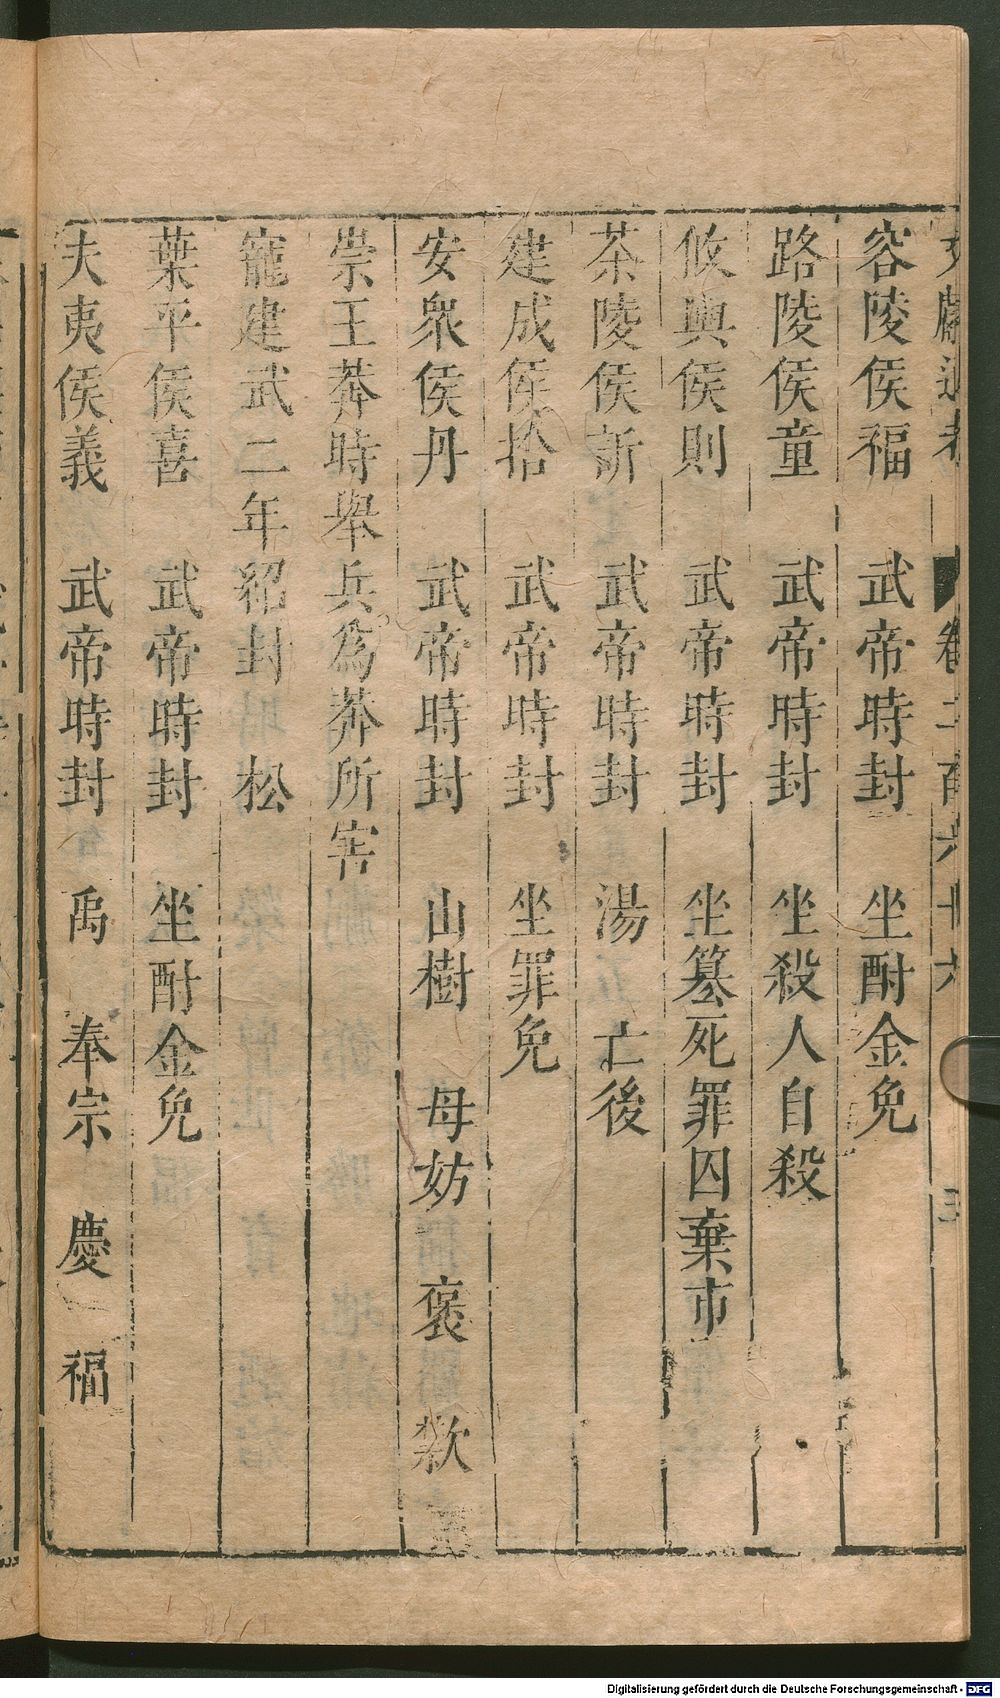 文獻通考 卷二百六十六 三
容陵侯福 武帝時封 坐酎金免
路陵侯童 武帝時封 坐殺人自殺
攸輿侯則 武帝時封 坐篡死罪囚棄市
茶陵侯訢 武帝時封 湯 亡後
建成侯拾 武帝時封 坐罪免
安衆侯丹 武帝時封 山樹 母妨 褒 歘
崇王莽時舉兵爲莽所害
寵建武二年紹封 松
葉平侯喜 武帝時封 坐酎金免
夫夷侯義 武帝時封 禹 奉宗 慶 福
Digitalisierung gefördert durch die Deutsche Forschungsgemeinschaft - DFG